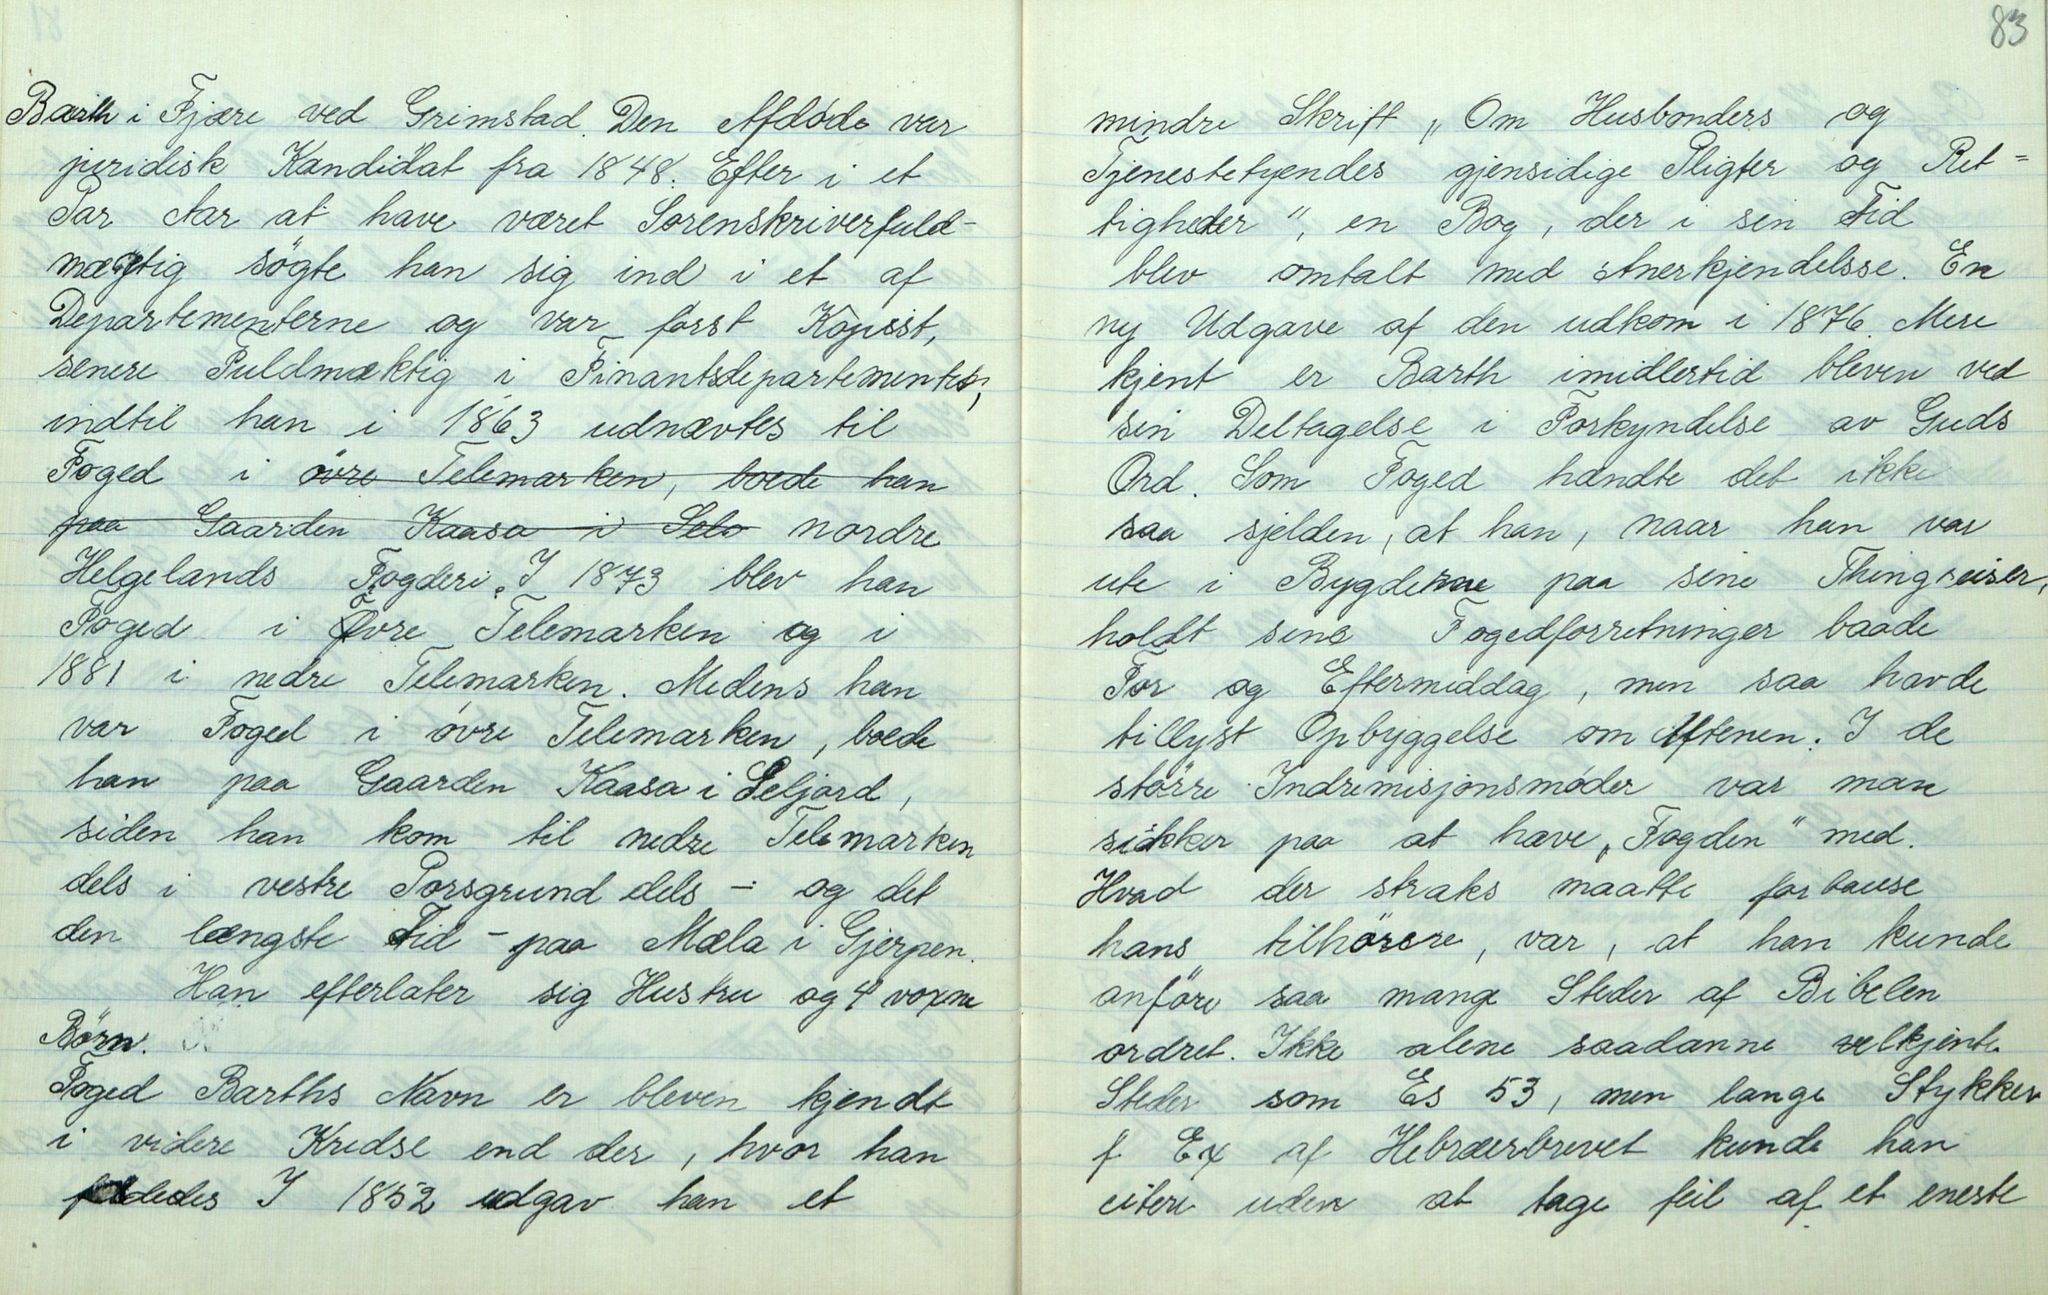 Barth i Fjære ved Grimstad. Den Afdøde var
juridisk Kandidat fra 1848. Efter i et
Par Aar at have været Sorenskriverfuld-
mægtig søgte han sig ind i et af
Departementerne og var først Kopist,
senere Fuldmæktig i Finantsdepartementet,
indtil han i 1863 udnævtes til
Foged i övre Telemarken, boede han
paa Gaarden Kaasa i Selo nordre
Helgelands Fogderi. I 1873 blev han
Foged i Øvre Telemarken og i
1881 i nedre Telemarken. Medens han
var Foged i øvre Telemarken, boede
han paa Gaarden Kaasa i Seljord,
siden han kom til nedre Telemarken
dels i vestre Porsgrund dels – og det
den længste Tid – paa Mæla i Gjerpen.
Han efterlater sig Hustru og 4 voxne
Börn.
Foged Barths Navn er bleven kjendt
i videre Kredse end der, hvor han
I 1852 udgav han et
83
mindre Skrift „Om Husbonders og
Tjenestetyendes gjensidige Pligter og Ret=
tigheder", en Bog, der i sin Tid
blev omtalt med Anerkjendelsse. En
ny Udgave af den udkom i 1876. Mere
kjent er Barth imidlertid bleven ved
sin Deltagelse i Forkyndelse av Guds
Ord. Som Foged hændte det ikke
saa sjelden, at han, naar han var
ute i Bygderne paa sine Thingreiser,
holdt sine Fogedforretninger baade
For og Eftermiddag, men saa havde
tillyst Opbyggelse om Aftenen. I de
större Indremisjonsmøder var man
sikker paa at have „Fogden" med.
Hvad der straks maatte forbause
hans tilhörere, var, at han kunde
anföre saa mange Steder af Bibelen
ordret. Ikke alene saadanne velkjente
Steder som Es 53, men lange Stykker
f Ex af Hebræerbrevet kunde han
citere uden at tage feil af et eneste